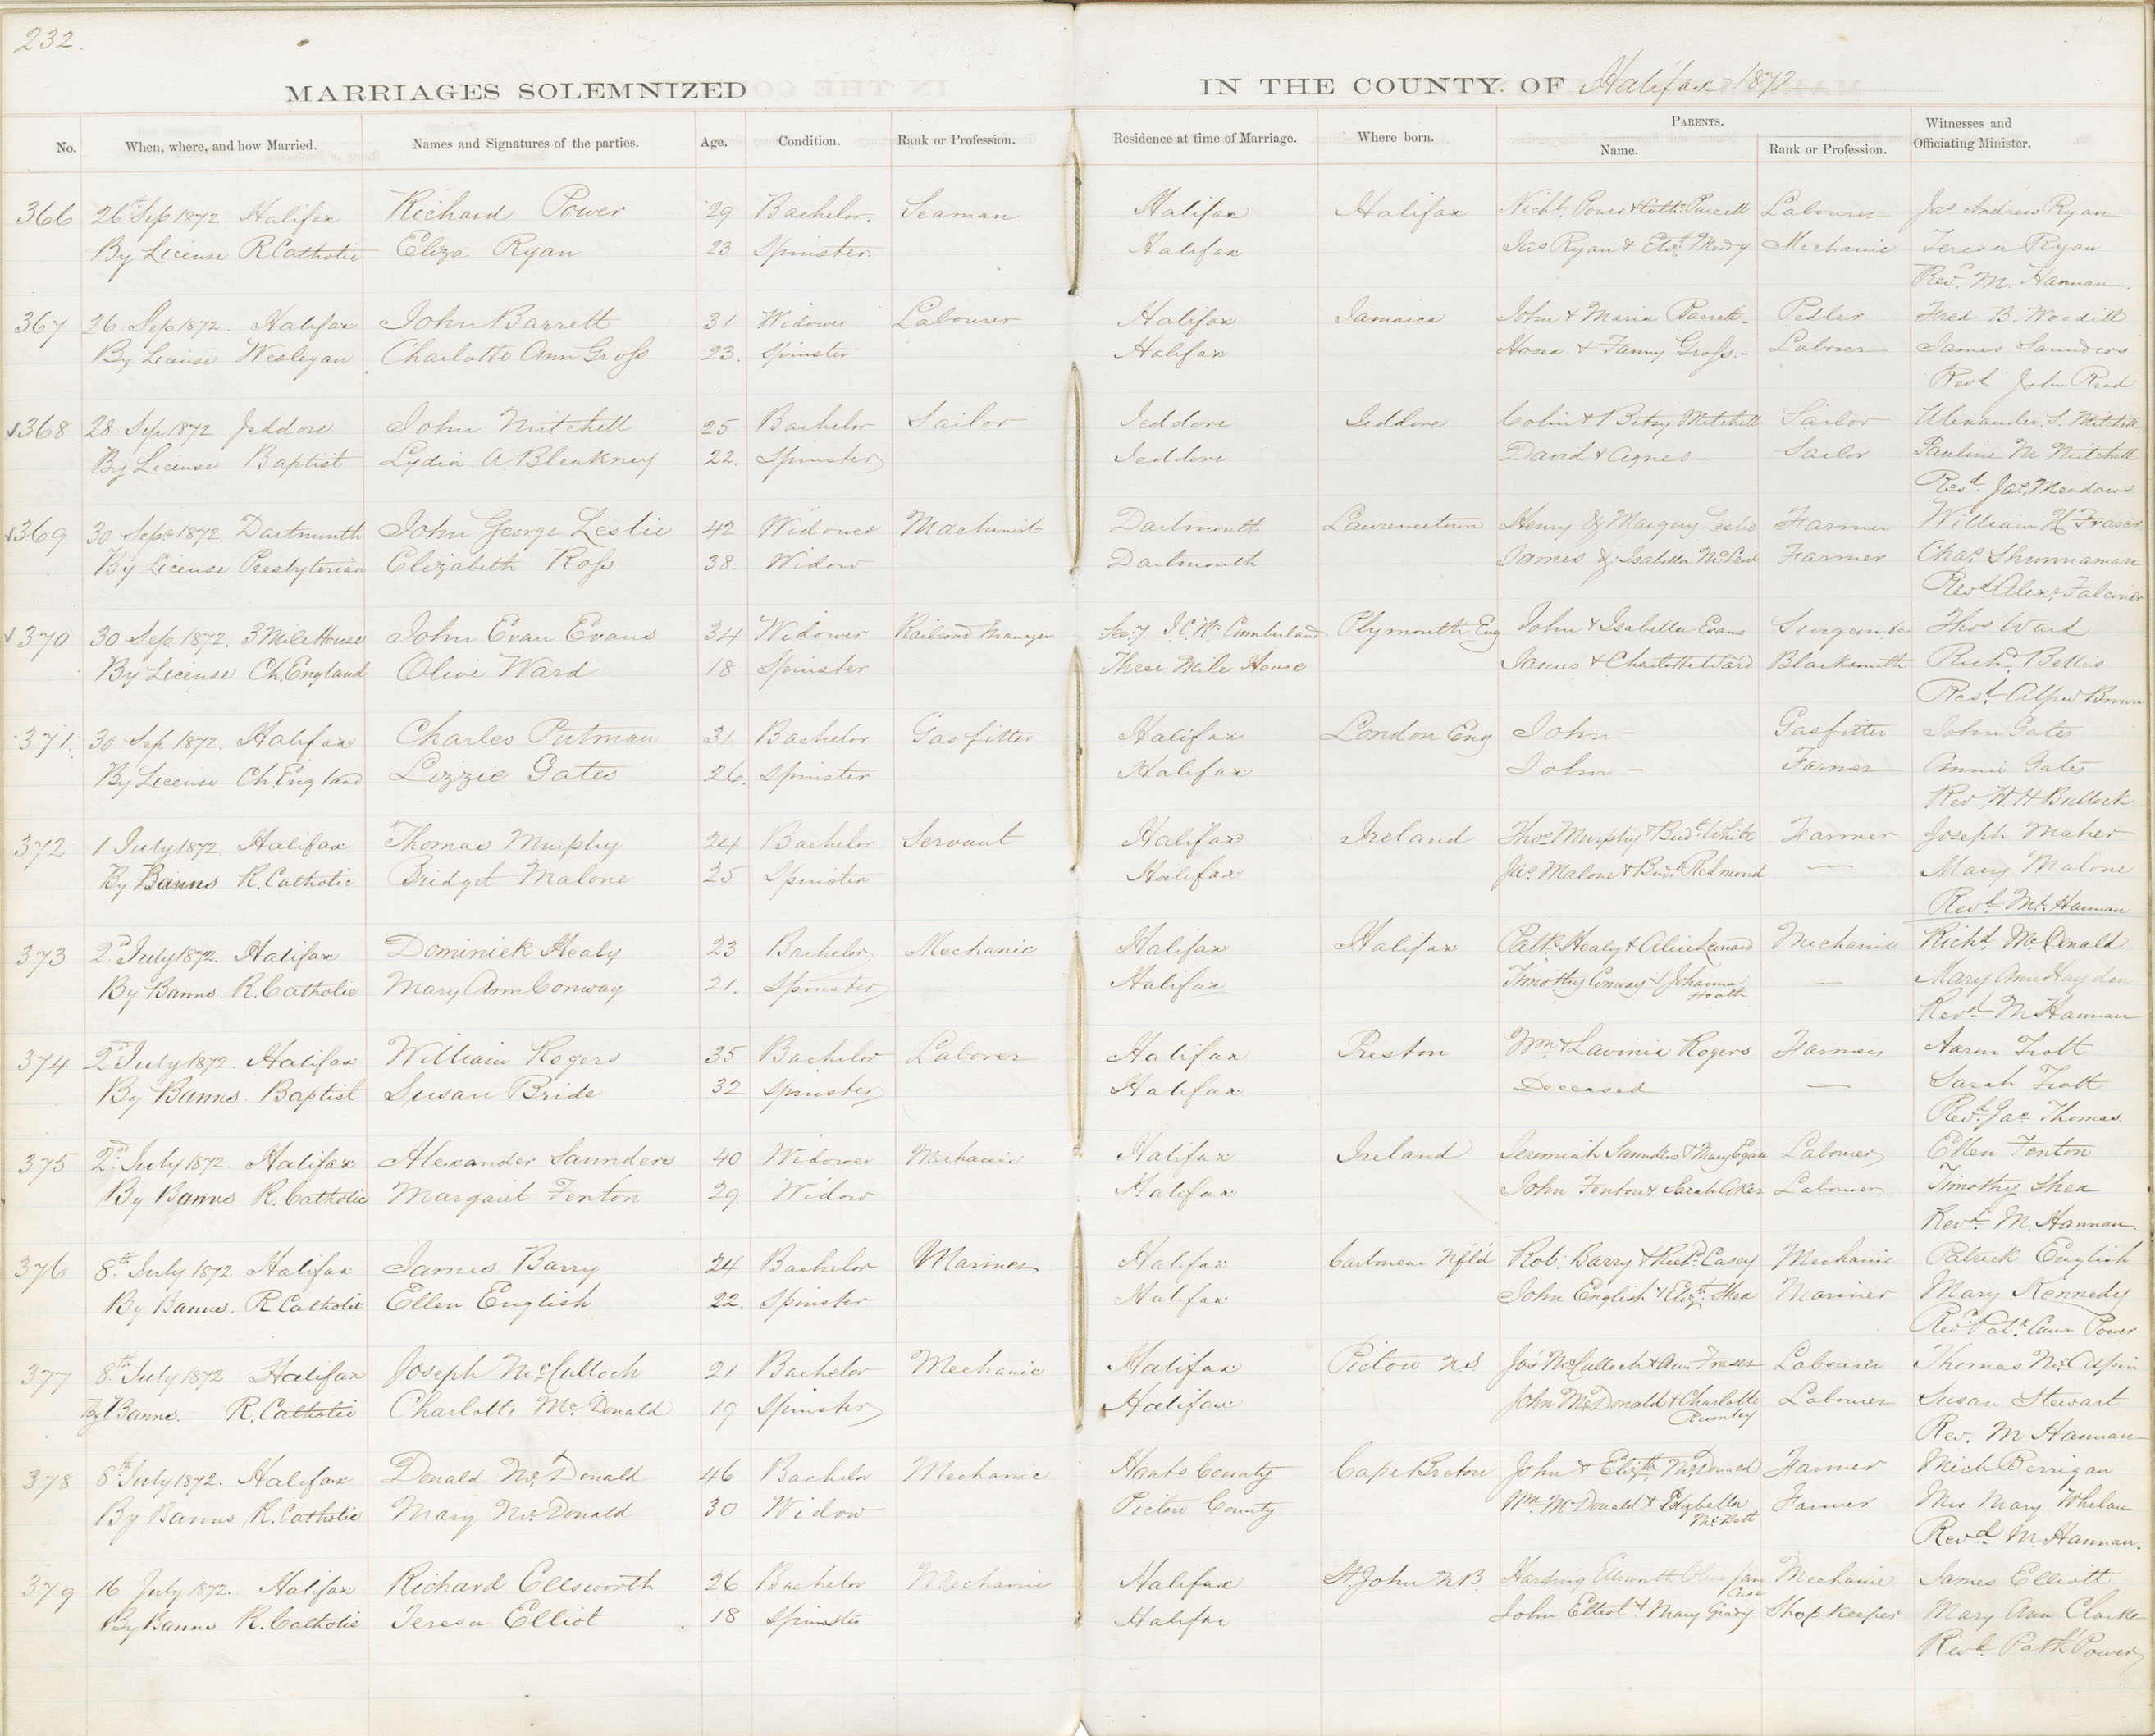 232.
MARRIAGES SOLEMNIZED IN THE COUNTY OF Halifax 1872
No. When, where, and how Married. Names and Signatures of the parties. Age. Condition. Rank or Profession. Residence at time of Marriage. Where born. PARENTS. Name. Rank or Profession. Witnesses and Officiating Minister.
366 26th Sep 1872 Halifax Richard Power 29 Bachelor. Seaman Halifax Halifax Nichs. Power & Cath: Purcell Labourer Jas Andrew Ryan
By License R Catholic Eliza Ryan 23 Spinster. Halifax Jas Ryan & Eliz: Mechanic Teresa Ryan
Revd. M. Hannan.
367 26 Sep 1872. Halifax John Barrett 31 Widower Labourer Halifax Jamaica John & Maria Barrett- Pedler Fred B. Woodill
By License Wesleyan Charlotte Ann Gross 23. Spinster Halifax Hosea & Fanny Gross.- Laborer James Saunders
Revd. John Read
368 28 Sep 1872 Jeddore John Mitchell 25 Bachelor Sailor Jeddore Jeddore Colin & Betsy Mitchell Sailor Alexander S. Mitchell
By License Baptist Lydia A. Bleakney 22. Spinster Jeddore David & Agnes - Sailor Pauline M Mitchell
Revd. Jas. Meadows
369 30 Sept 1872. Dartmouth John George Leslie 42 Widower Machinist Dartmouth Lawrencetown Henry & Margery Leslie Farmer William H Fraser
By License Presbyterian Elizabeth Ross 38. Widow Dartmouth James & Isabella Farmer Chas. Shunnaman
Revd Alexr Falconer
370 30 Sep. 1872. 3 Mile House John Evan Evans 34 Widower Railroad Manager Sec: 7. I.C.R. Cumberland Plymouth Eng John & Isabella Evans Thos Ward
By License Ch. England Olive Ward 18 Spinster Three Mile House James & Charlotte Ward Blacksmith Richd. Bellis
Revd. Alfred Brown
371. 30 Sep 1872. Halifax Charles Putman 31 Bachelor Gasfitter Halifax London Eng John - Gasfitter John Gates
By License Ch. England Lizzie Gates 26. Spinster Halifax John - Farmer Annie Gates
Rev. W. H Bullock
372 1 July 1872 Halifax Thomas Murphy 24 Bachelor Servant Halifax Ireland Thos Murphy & Bridt. White Farmer Joseph Maher
By Banns R. Catholic Bridget Malone 25 Spinster Halifax Jas. Malone & Bridt. Redmond — Mary Malone
Revd. M. Hannan
373 2d July 1872. Halifax Dominick Healy 23 Bachelor Mechanic Halifax Halifax Patk. Healy & Alice Mechanic Richd. McDonald
By Banns. R. Catholic Mary Ann Conway 21. Spinster Halifax Timothy Conway & Johanna — Mary Ann Hayden
Heath
Revd. M Hannan
374 2d July 1872. Halifax William Rogers 35 Bachelor Laborer Halifax Preston Wm & Lavinia Rogers Farmer Aaron Trott
By Banns. Baptist Susan Bride 32 Spinster Halifax Deceased — Sarah Trott
Revd. Jas. Thomas.
375 2nd July 1872. Halifax Alexander Saunders 40 Widower Mechanic Halifax Ireland Jeremiah Saunders & Mary Egan Labourer Ellen Fenton
By Banns R. Catholic Margaret Fenton 29. Widow Halifax John Fenton & Sarah Labourer Timothy Shea
Revd. M. Hannan.
376 8th July 1872. Halifax James Barry 24 Bachelor Mariner Halifax Carbonear Nfld Rob: Barry & Casey Mechanic Patrick English
By Banns. R Catholic Ellen English 22. Spinster Halifax John English & Elizth Shea Mariner Mary Kennedy
Revd Patk. Power
377 8th July 1872 Halifax Joseph McCulloch 21 Bachelor Mechanic Halifax Pictou N.S Jos McCulloch & Ann Fraser Labourer Thomas
By Banns. R. Catholic Charlotte McDonald 19 Spinster Halifax John McDonald & Charlotte Labourer Susan Stewart
Rev. M Hannan
378 8th July 1872. Halifax Donald McDonald 46 Bachelor Mechanic Hants County Cape Breton John & Elizth McDonald Farmer Mich Berrigan
By Banns R. Catholic Mary McDonald 30 Widow Pictou County Wm. McDonald & Farmer Mrs Mary Whelan
Revd M. Hannan.
379 16 July 1872. Halifax Richard Ellsworth 26 Bachelor Mechanic Halifax St. John N.B. Harding Ellsworth Mechanic James Elliott
By Banns R. Catholic Teresa Elliot 18 Spinster Halifax John Elliot & Mary Grady Shopkeeper Mary Ann Clarke
Revd. Patk Power